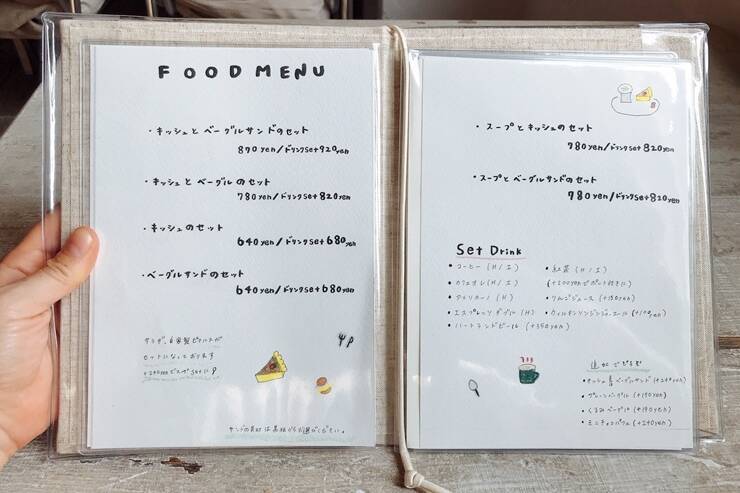 FOOD MENU
・キッシュと ベーグルサンドのセット
870 yen/ドリンクset 920yen
・キッシュと ベーグルのセット
780 yen/ドリンクset 820yen
・キッシュのセット
640 yen/ドリンクset 680yen
・ベーグルサンドのセット
640 yen/ドリンクset 680yen
サラダ、自家製ピクルスが
セットになっております
サンドの具材は黒板からお選びください。
・スープとキッシュのセット
780 yen/ドリンクset 820yen
・スープとベーグルサンドのセット
780 yen/ドリンクset 820yen
Set Drink
・コーヒー (H / I)
・カフェオレ (H / I)
・アメリカーノ (H)
・エスプレッソ ダブル (H)
・ハートランドビール (+350yen)
・紅茶 (H / I)
(+200yenでポット付きに)
・りんごジュース (+150yen)
・ウィルキンソンジンジャエール (+100yen)
追加できるもの
・プレーンベーグル (+190yen)
・くるみベーグル (+190yen)